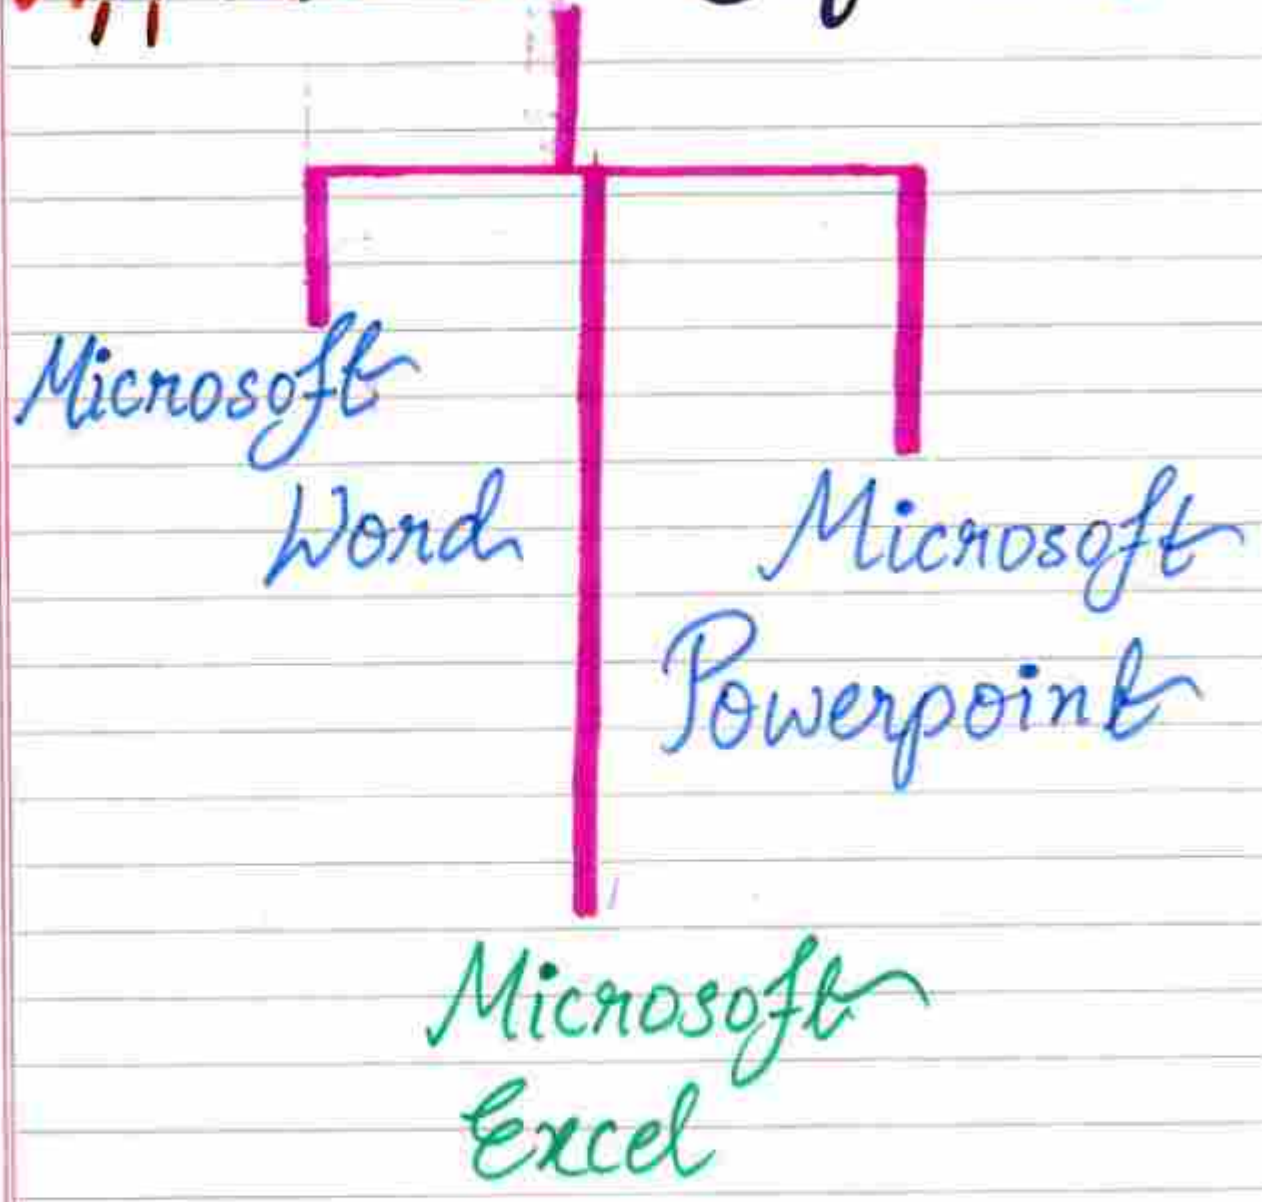 Microsoft
Word
Microsoft
Powerpoint
Microsoft
Excel